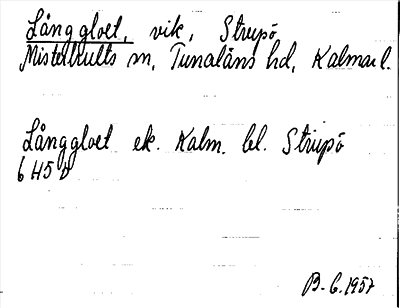 Långgloet, vik, Strupö
Misterhults sn, Tunaläns hd, Kalmar l.
Långgloet ek. Kalm. bl. Strupö
6 H5 d
B-G.1957